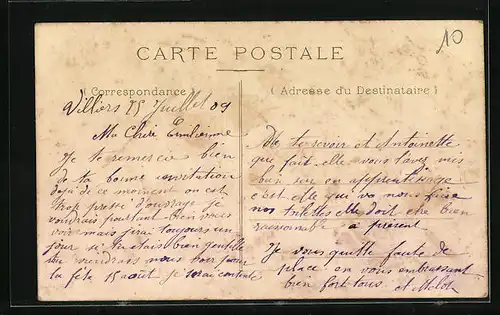 10
CARTE POSTALE
(Correspondance)
(Adresse du Destinataire)
Villiers 15 Juillet 09
Ma Chère Emilienne
Je te remercie bien
de ta bonne invitation
déjà de ce moment on est
trop pressé d'ouvrage je
voudrais pourtant bien vous
voir mais j'irai toujours un
jour si tu étais bien gentille
tu viendrais nous voir pour
la fête 15 août je serai contente
de te revoir et Antoinette
que fait-elle vous l'avez mis
bien sur en apprentissage
c'est elle qui va nous faire
nos toilettes elle doit être bien
raisonnable à présent
Je vous quitte faute de
place en vous embrassant
bien fort tous et